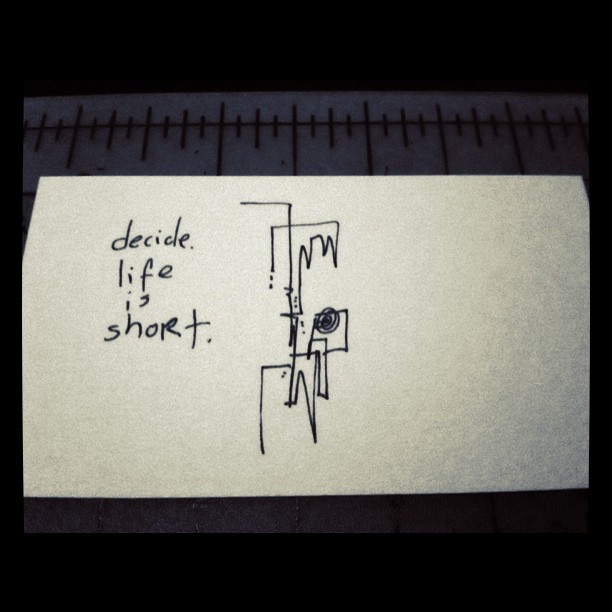 decide.
life
is
short.